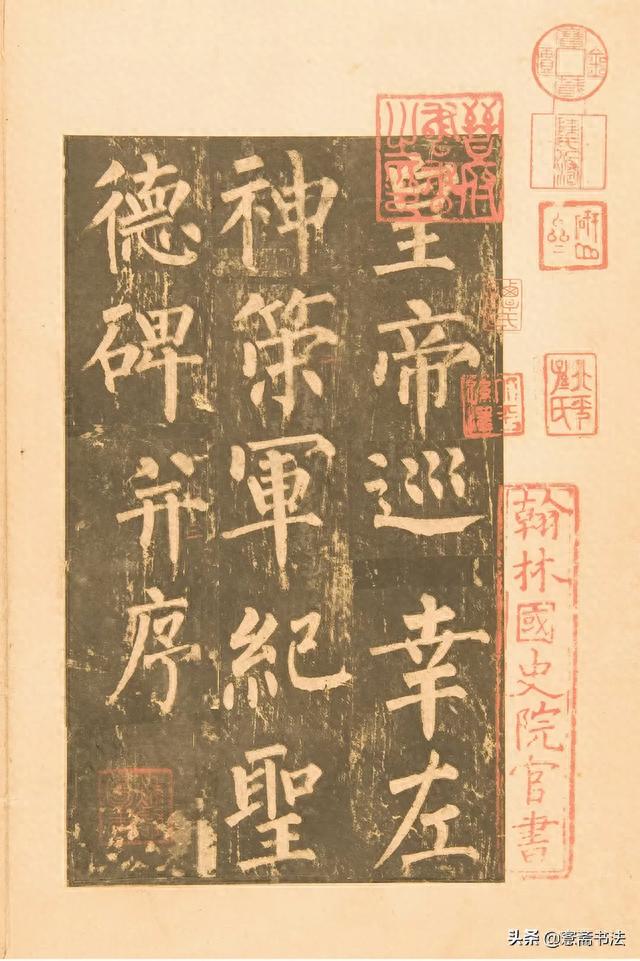 晉府書畫之印
皇帝巡幸左
神策軍紀聖
德碑并序
翰林國史院官書
头条 @斋书法